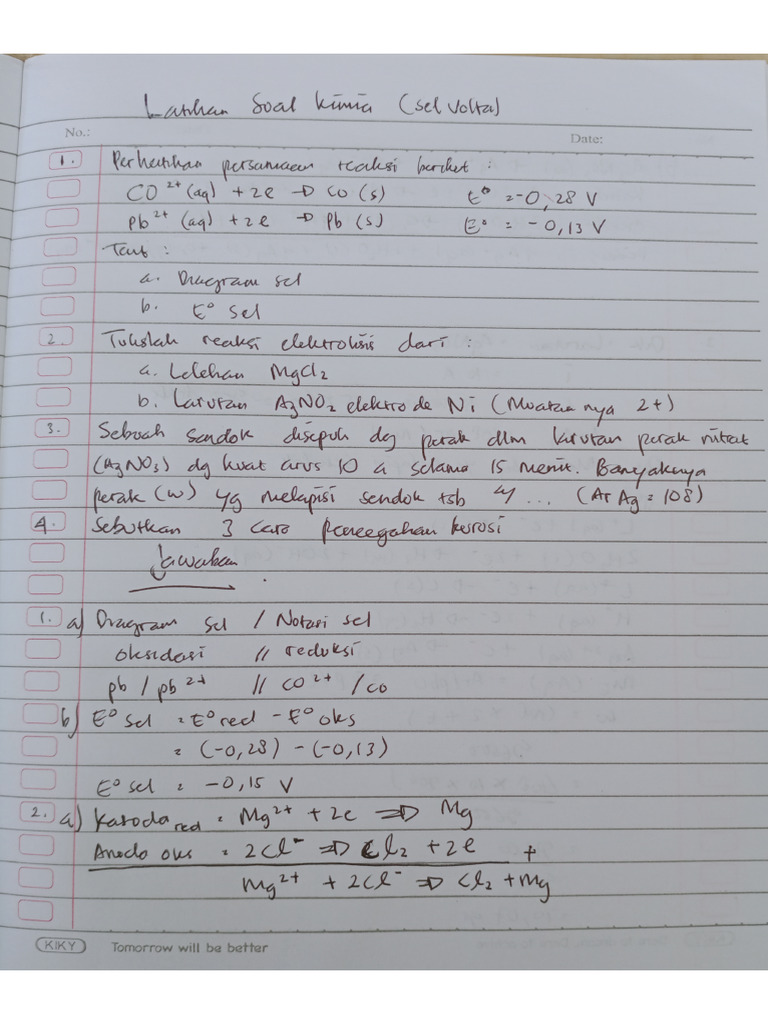 Latihan Soal Kimia (sel Volta)
No.: Date:
1. Perhatikan persamaan reaksi berikut :
CO ²⁺ (aq) + 2e → CO (s) E° = -0,28 V
Pb²⁺ (aq) + 2e → Pb (s) E° = -0,13 V
Tent :
a. Diagram sel
b. E° Sel
2. Tulislah reaksi elektrolisis dari :
a. Lelehan MgCl₂
b. Larutan AgNO₂ elektrode Ni (Muatannya 2+)
3. Sebuah sendok disepuh dg perak dlm larutan perak nitrat
(AgNO₃) dg kuat arus 10 a selama 15 menit. Banyaknya
perak (w) yg melapisi sendok tsb ... (Ar Ag = 108)
4. Sebutkan 3 cara pencegahan korosi
Jawaban
1. a) Diagram sel / Notasi sel
oksidasi // reduksi
pb / pb ²⁺ // CO ²⁺ / CO
b) E° sel = E° red - E° oks
= (-0,28) - (-0,13)
E° sel = -0,15 V
2. a) Katoda red = Mg²⁺ + 2e ⇒ Mg
Anoda oks = 2Cl⁻ ⇒ Cl₂ + 2e +
Mg²⁺ + 2Cl⁻ ⇒ Cl₂ + Mg
KIKY Tomorrow will be better